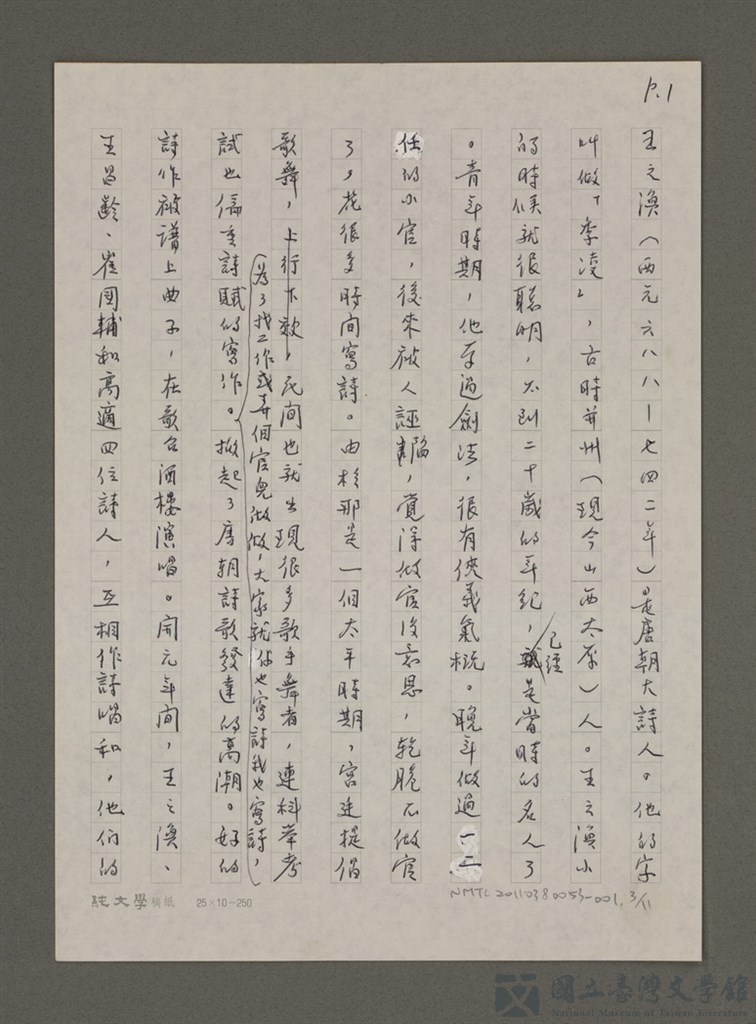 P.1
王之渙（西元六八八－七四二年）是唐朝大詩人。他的字
叫做「季凌」，古時并州（現今山西太原）人。王之渙小
的時候就很聰明，不到二十歲的年紀，已經是當時的名人了
。青年時期，他學過劍法，很有俠義氣概。晚年做過一二
任的小官，後來被人誣陷，覺得做官沒意思，乾脆不做官
了，花很多時间寫詩。由於那是一個太平時期，宮廷提倡
歌舞，上行下效，民间也就出現很多歌手舞者，連科举考
試也偏重詩賦的寫作。為了找工作或弄個官兒做做，大家就你也寫詩我也寫詩，掀起了唐朝詩歌發達的高潮。好的
詩作被譜上曲子，在歌台酒樓演唱。開元年间，王之渙、
王昌齡、崔國輔和高適四位詩人，互相作詩唱和，他们的
純文學稿紙 25×10=250
NMTL20110380053-001, 3/11
國立臺灣文學館
National Museum of Taiwan Literature